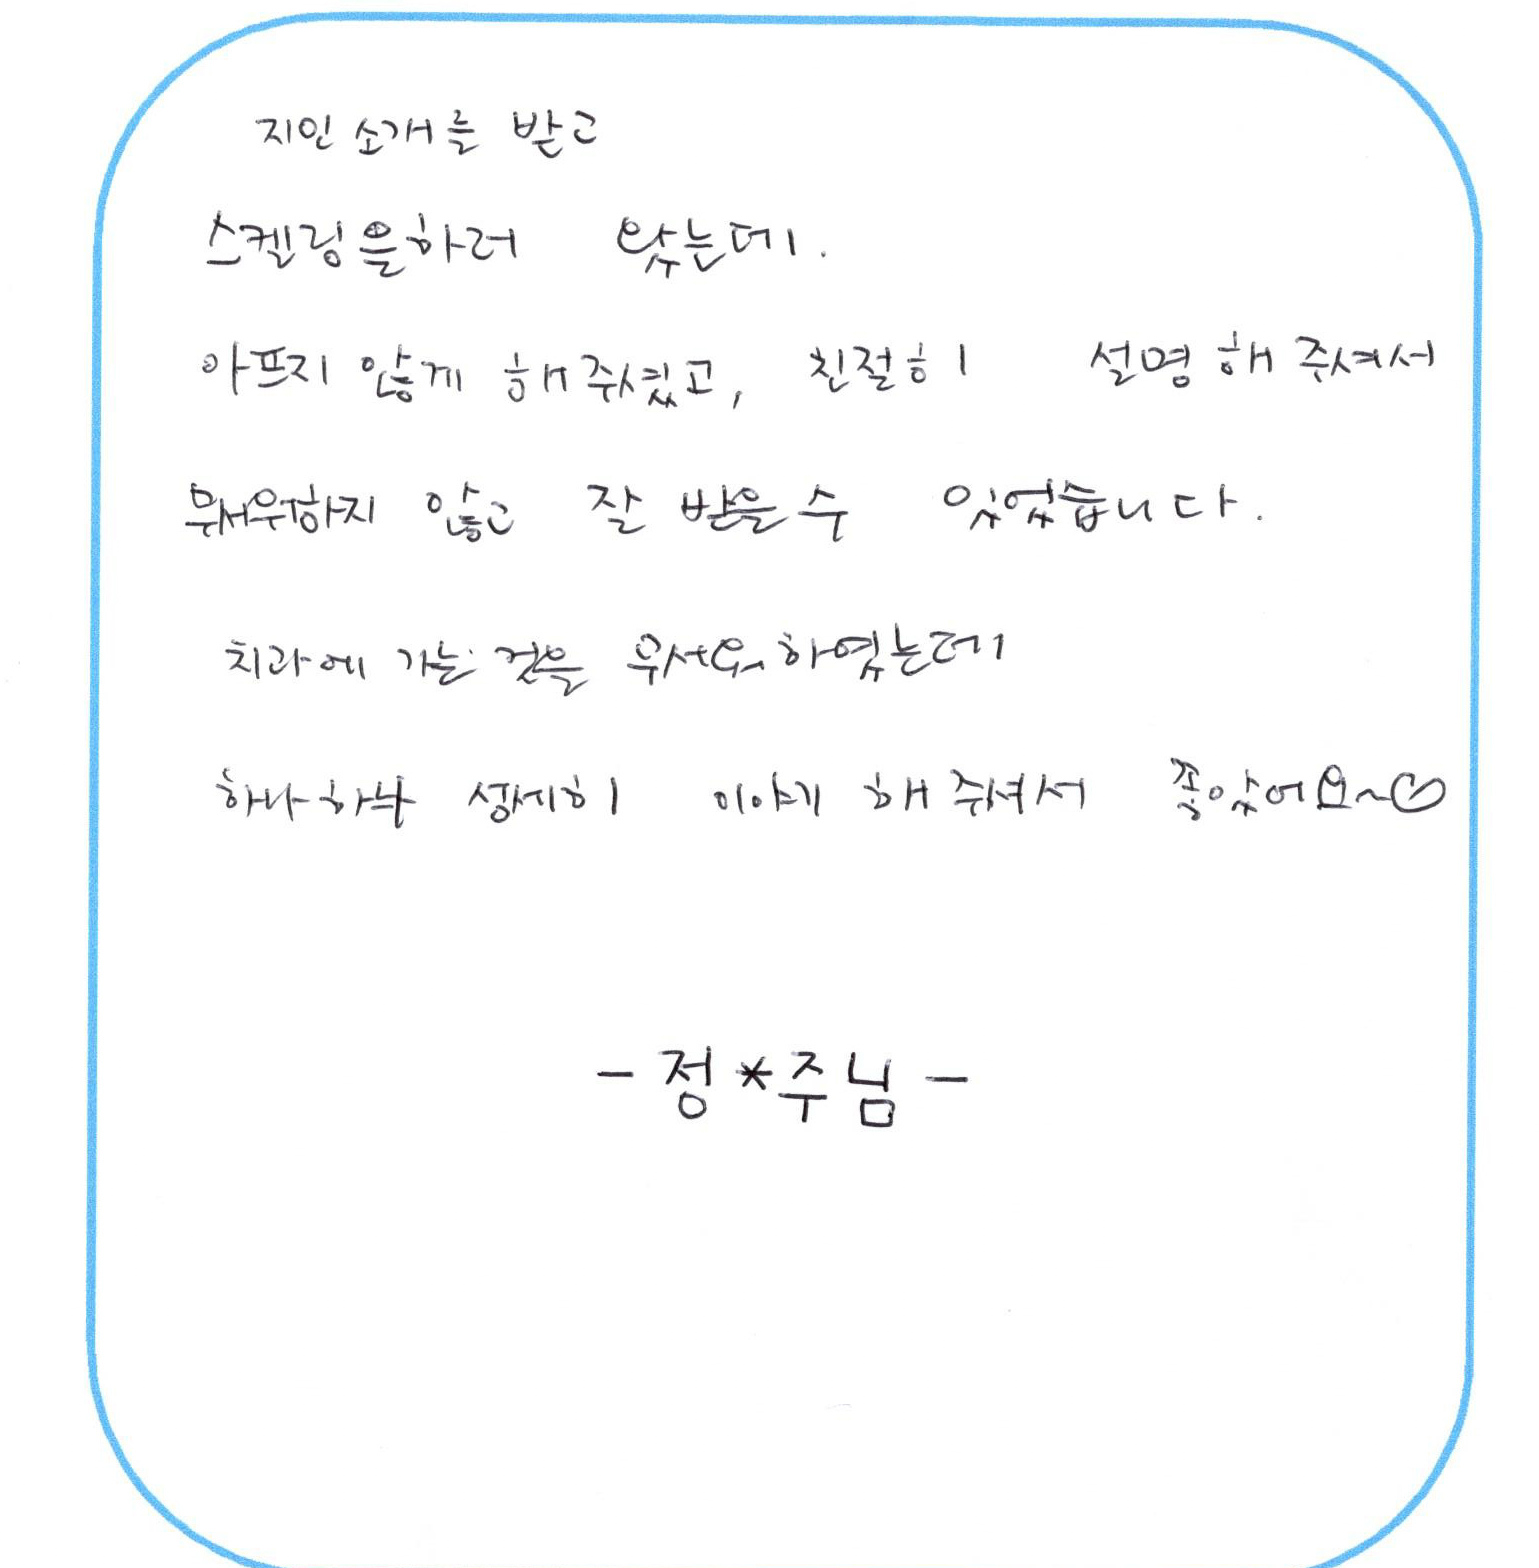 지인 소개를 받고
스켈링을하러 왔는데.
아프지 않게 해주셨고, 친절히 설명해주셔서
무서워하지 않고 잘 받을 수 있었습니다.
치과에 가는 것을 무서워하였는데
하나하나 상세히 이야기 해 주셔서 좋았어요~♡
- 정*주님 -